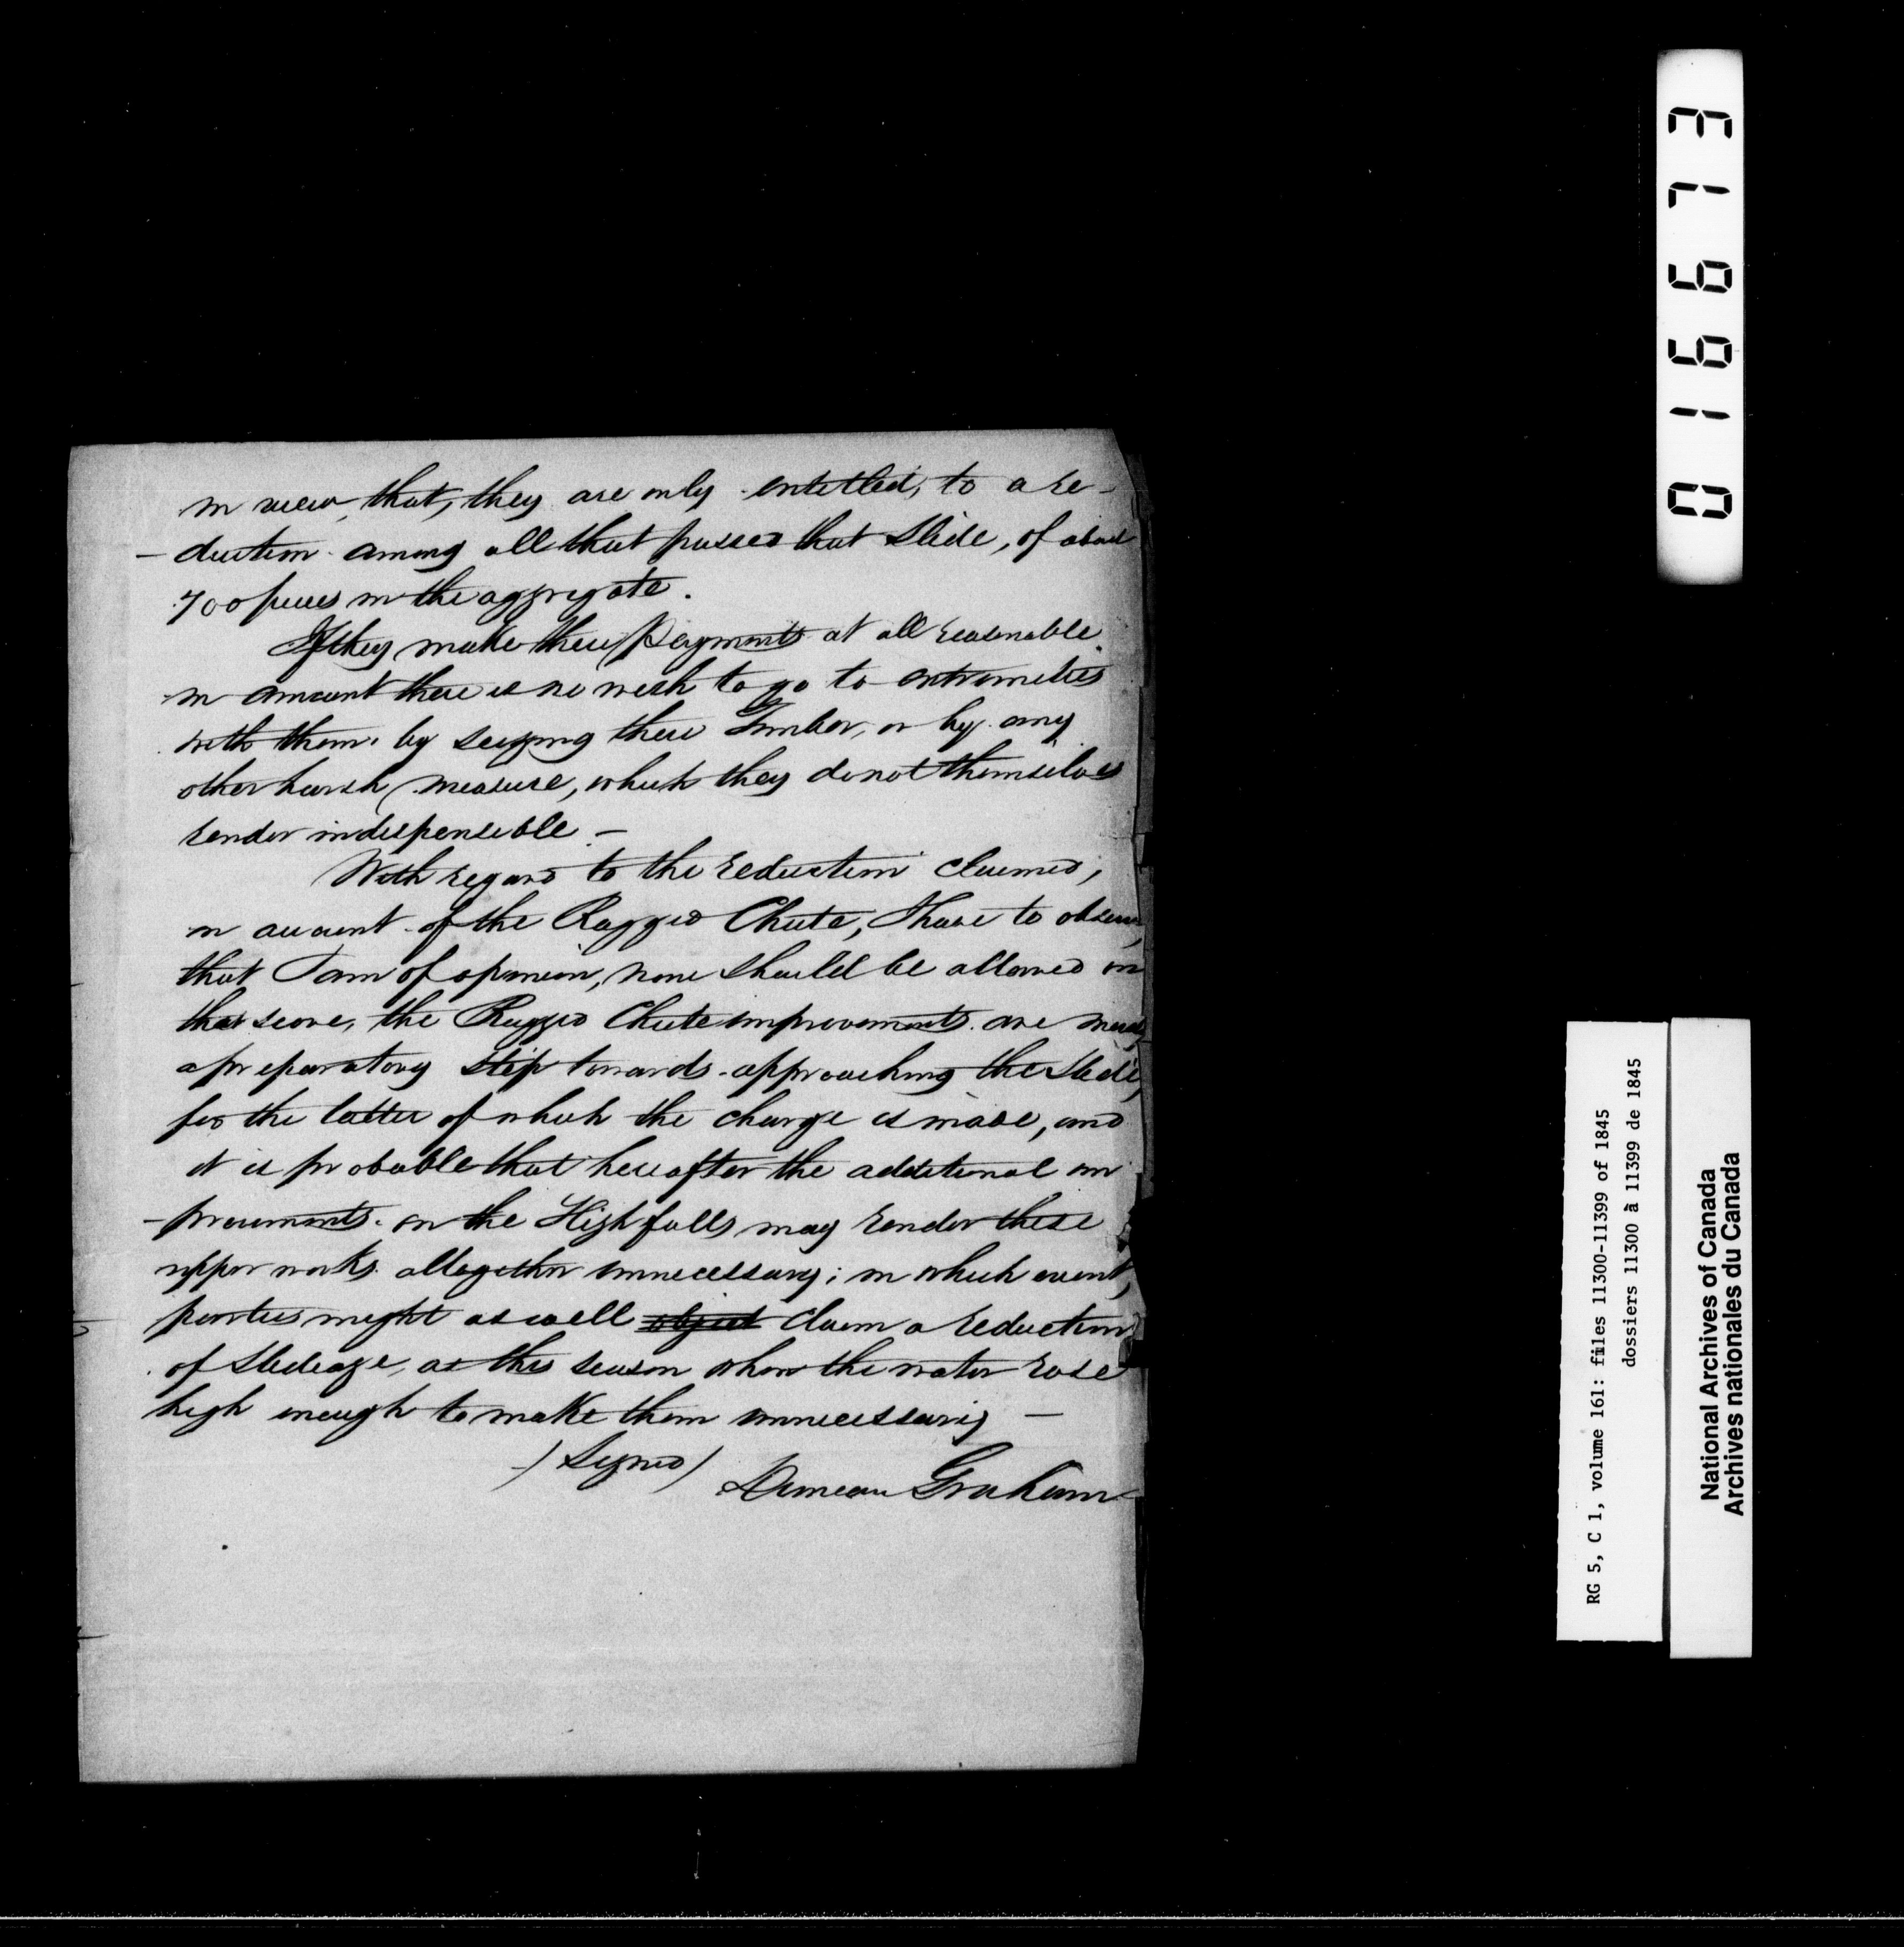 in view, that, they are only entitled, to a re-
- duction among all that passed that Slide, of about
700 pieces in the aggregate.
If they make their payments at all reasonable
in amount there is no wish to go to extremities
with them, by seizing their Timber, or by any
other harsh measure, which they do not themselves
render indispensible -
With regard to the reduction claimed,
on account of the Ragged Chute, I have to observe,
that I am of opinion, none should be allowed on
that score, the Ragged Chute improvements are merely
a preparatory step towards approaching the Slide,
for the latter of which the charge is made, and
it is probable that hereafter the additional im
- provements on the High falls may render these
upper works altogether unnecessary; in which event,
parties might as well object claim a reduction
of Slideage, as this season when the water rose
high enough to make them unnecessary -
/ Signed / Duncan Graham
016673
RG 5, C 1, volume 161: files 11300-11399 of 1845
dossiers 11300 à 11399 de 1845
National Archives of Canada
Archives nationales du Canada